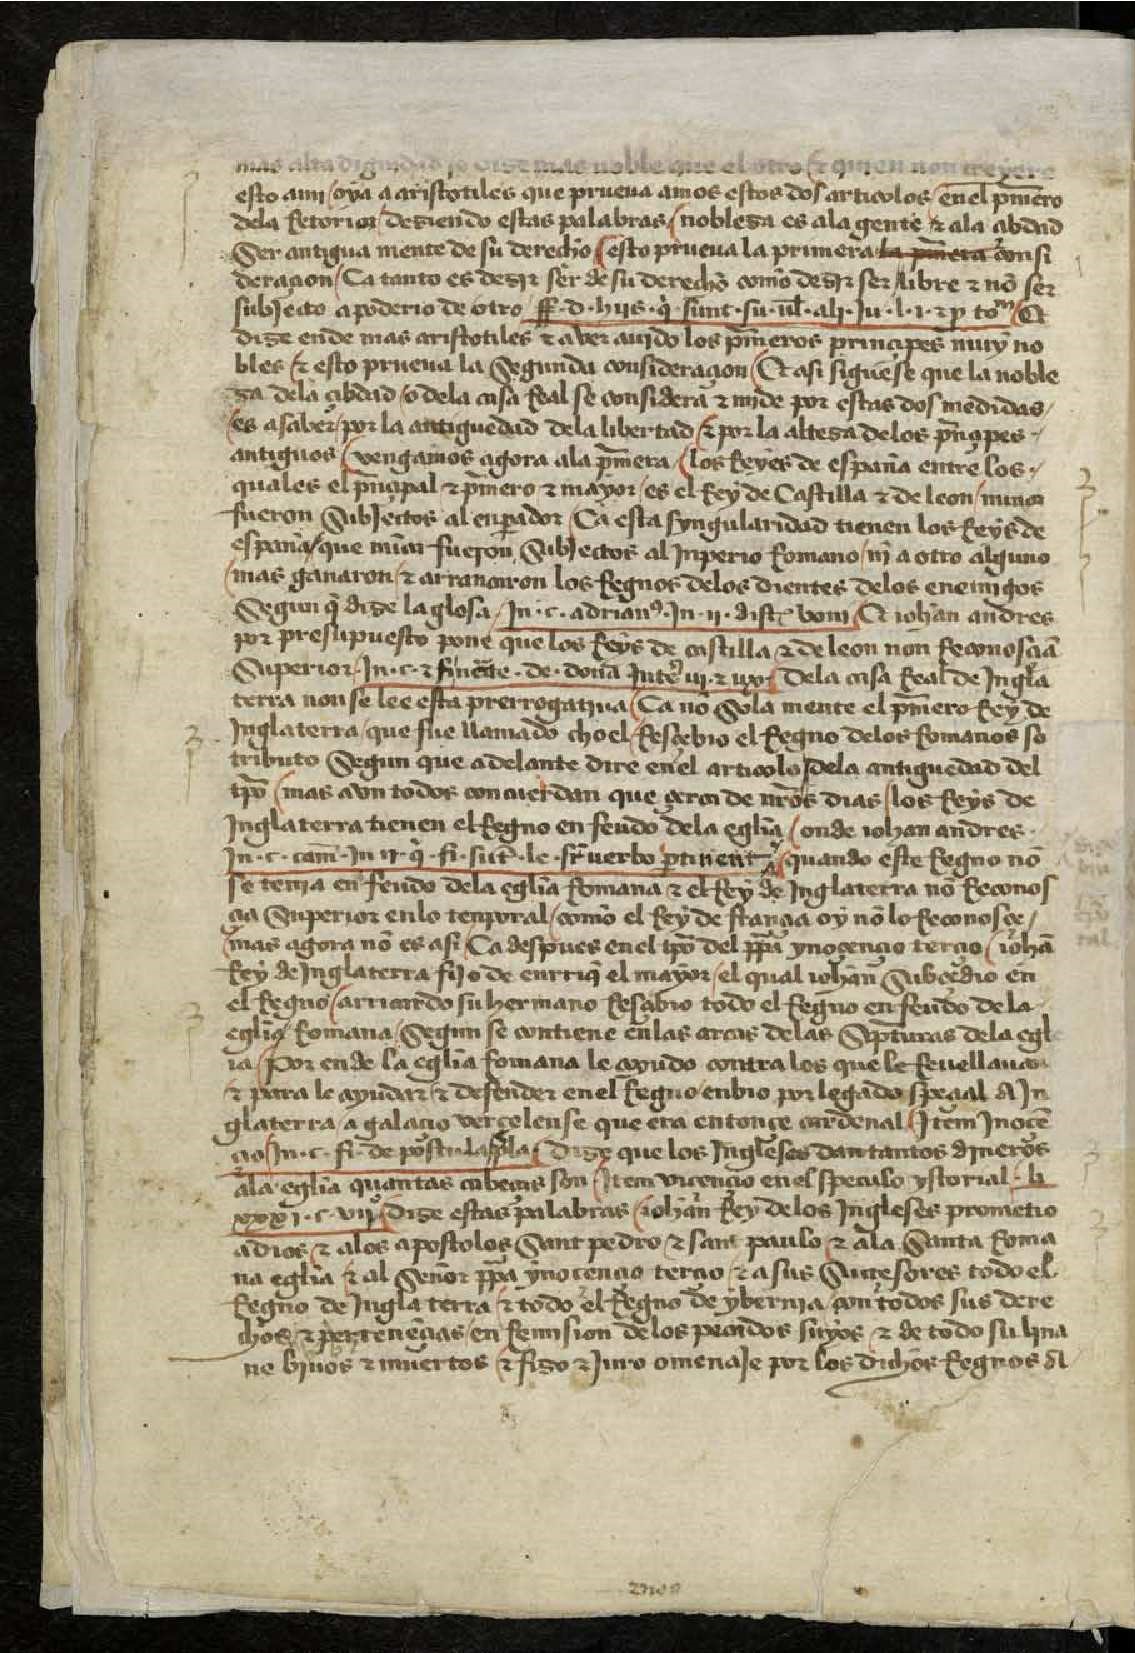 mas alta dignidad se dise mas noble que el otro / & quien non creyere
esto a mi / oya a aristotiles que prueua amos estos dos articolos / en el pmero
dela Retorica / desiendo estas palabras / noblesa es ala gente & ala abdad
Ser antigua mente de su derecho / esto prueua la primera la pmera consi
deraçion / Ca tanto es desir ser de su derecho como desir ser libre & nō ser
subjecto a poderio de otro / ff. d. hijs. q̄. sunt. su. ul. alj. Ju. l. i. & p totm / Et
dise ende mas aristotiles & aver auido los pmeros prinçipes muy no
bles / & esto prueua la Segunda consideraçion / Et asi siguese que la noble
sa dela çibdad / o dela casa Real se considera & mide por estas dos medidas /
es a saber / por la antiguedad dela libertad / & por la altesa delos pnçipes
antiguos / vengamos agora ala pmera / los Reyes de españa entre los
quales el pnçipal & pmero & mayor / es el Rey de Castilla & de leon / nunca
fueron Subjectos al enpador / Ca esta syngularidad tienen los Reys de
españa / que nūca fueron Subjectos al Inperio Romano / nj a otro alguno
mas ganaron / & arrancaron los Regnos delos dientes delos enemigos
Segun q̄ dise la glosa / In. c. adrianꝰ. In. ij. dist. / Et iohan andres
por presupuesto pone que los Reys de castilla & de leon non Reconosciā
Superior / In. c. & de. donā Inter ui. & ux / Dela casa Real de Ingla
terra non se lee esta prerrogatiua / Ca nō Sola mente el pmero Rey de
Inglaterra / que fue llamado choel / Resçebio el Regno delos Romanos so
tributo Segun que adelante dire en el articolo / dela antiguedad del
tpo / mas avn todos concuerdan que çerca de nros dias / los Reys de
Inglaterra tienen el Regno en feudo dela eglia / onde iohan andres
In. c. cam. In ij. q̄. fi. sut. le. sr uerbo ptinent / quando este Regno nō
se tenia en feudo dela eglia Romana & el Rey de Inglaterra nō Reconos
çia Superior en lo tenporal / como el Rey de françia oy nō lo Reconosce /
mas agora nō es asi / Ca despues en el tpo del ppa ynoçençio terçio / iohā
Rey de Inglaterra fijo de enrriq̄ el mayor / el qual iohan Subçedio en
el Regno / a rricardo su hermano Resçibio todo el Regno en feudo de la
eglia Romana / Segun se contiene en las arcas de las Scpturas dela egl
ia / Por ende la eglia Romana le ayudo contra los que le Reuellauan
& para le ayudar & defender en el Regno / enbio por legado speçial A In
glaterra / a galaçio verçelense que era entonçe cardenal / Item Inoçē
çio / In. c. fi. de postula pla / Dise que los Ingleses dan tantos djneros
ala eglia quantas cabeças son / Item viçençio en el speculo ystorial. li
xxxj. c. vijº / Dise estas palabras / iohan Rey delos Ingleses prometio
a dios & alos apostolos Sant pedro & sant paulo & ala Santa Roma
na eglia & al Señor ppa ynoçençio terçio & a sus Suçesores todo el
Regno de Ingla terra / & todo el Regno de ybernia / con todos sus dere
chos & pertenēçias / en Remision delos pecados suyos & de todo su lina
ne biuos & muertos / & fiso & Juro omenaje por los dichos Regnos al